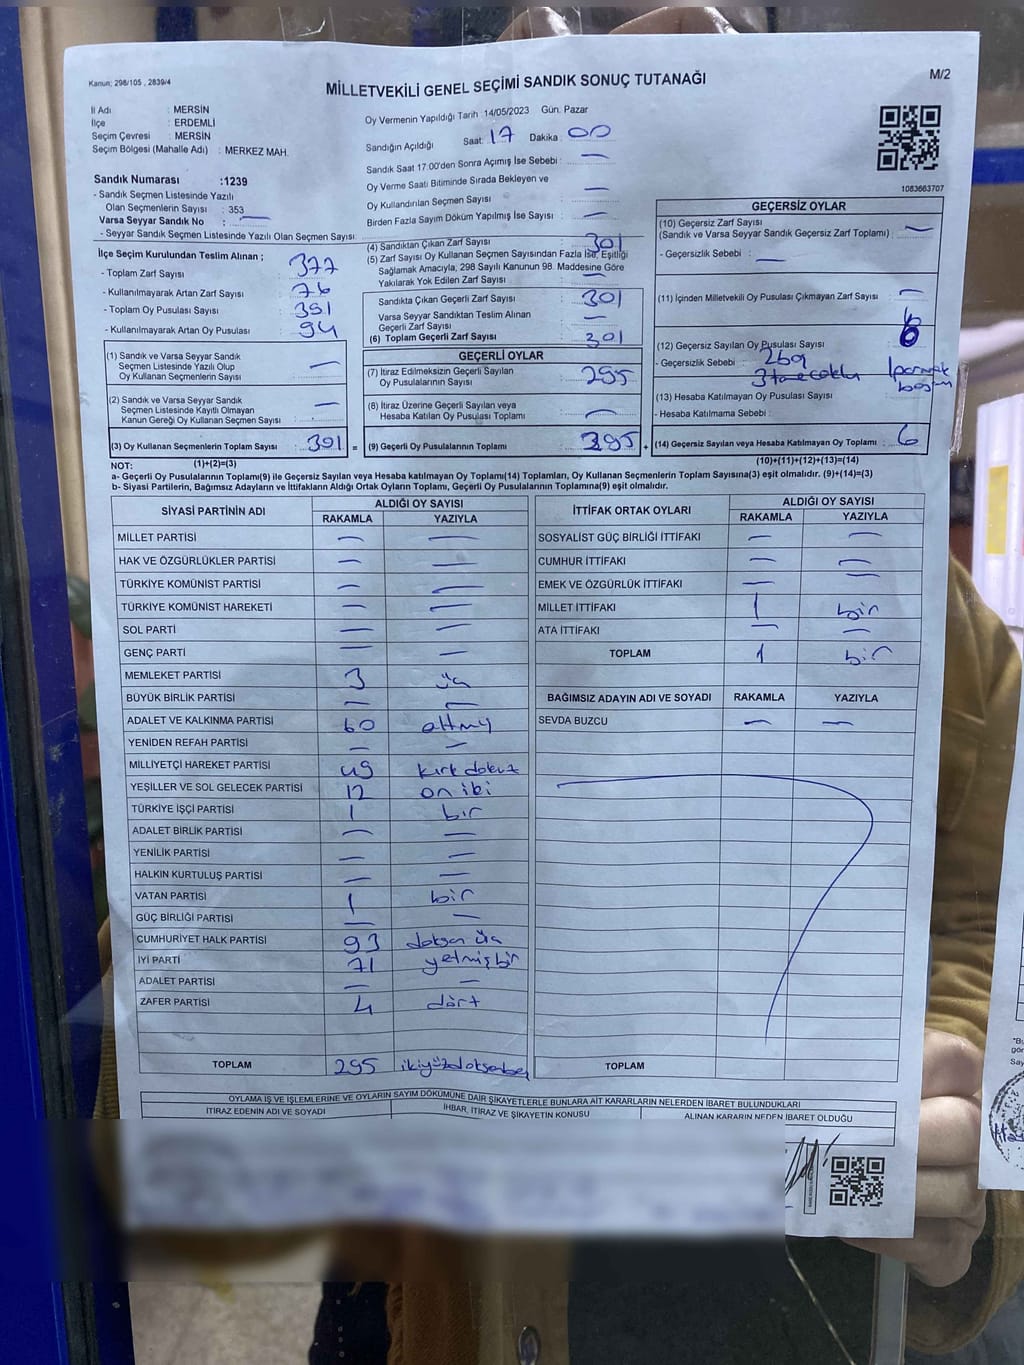 Kanun; 298/105 , 2839/4
MİLLETVEKİLİ GENEL SEÇİMİ SANDIK SONUÇ TUTANAĞI
M/2
İl Adı : MERSİN
İlçe : ERDEMLİ
Seçim Çevresi : MERSİN
Seçim Bölgesi (Mahalle Adı) : MERKEZ MAH.
Sandık Numarası :1239
- Sandık Seçmen Listesinde Yazılı
Olan Seçmenlerin Sayısı : 353
Varsa Seyyar Sandık No : —
- Seyyar Sandık Seçmen Listesinde Yazılı Olan Seçmen Sayısı:
Oy Vermenin Yapıldığı Tarih :14/05/2023 Gün. Pazar
Sandığın Açıldığı Saat: 17 Dakika : 00
Sandık Saat 17:00'den Sonra Açımış İse Sebebi : —
Oy Verme Saati Bitiminde Sırada Bekleyen ve
Oy Kullandırılan Seçmen Sayısı : —
Birden Fazla Sayım Döküm Yapılmış İse Sayısı : —
1083663707
İlçe Seçim Kurulundan Teslim Alınan ;
- Toplam Zarf Sayısı : 377
- Kullanılmayarak Artan Zarf Sayısı : 76
- Toplam Oy Pusulası Sayısı :
- Kullanılmayarak Artan Oy Pusulası : 94
(1) Sandık ve Varsa Seyyar Sandık
Seçmen Listesinde Yazılı Olup
Oy Kullanan Seçmenlerin Sayısı : —
(2) Sandık ve Varsa Seyyar Sandık
Seçmen Listesinde Kayıtlı Olmayan
Kanun Gereği Oy Kullanan Seçmen Sayısı : —
(3) Oy Kullanan Seçmenlerin Toplam Sayısı : 301 =
(1)+(2)=(3)
(4) Sandıktan Çıkan Zarf Sayısı : 301
(5) Zarf Sayısı Oy Kullanan Seçmen Sayısından Fazla İse, Eşitliği
Sağlamak Amacıyla, 298 Sayılı Kanunun 98. Maddesine Göre
Yakılarak Yok Edilen Zarf Sayısı : —
Sandıkta Çıkan Geçerli Zarf Sayısı : 301
Varsa Seyyar Sandıktan Teslim Alınan
Geçerli Zarf Sayısı : —
(6) Toplam Geçerli Zarf Sayısı : 301
GEÇERLİ OYLAR
(7) İtiraz Edilmeksizin Geçerli Sayılan
Oy Pusulalarının Sayısı : 295
(8) İtiraz Üzerine Geçerli Sayılan veya
Hesaba Katılan Oy Pusulası Toplamı : —
(9) Geçerli Oy Pusulalarının Toplamı : 295 +
GEÇERSİZ OYLAR
(10) Geçersiz Zarf Sayısı
(Sandık ve Varsa Seyyar Sandık Geçersiz Zarf Toplamı) : —
- Geçersizlik Sebebi : —
(11) İçinden Milletvekili Oy Pusulası Çıkmayan Zarf Sayısı : —
6
(12) Geçersiz Sayılan Oy Pusulası Sayısı : 6
- Geçersizlik Sebebi : 1 parmak
basım
(13) Hesaba Katılmayan Oy Pusulası Sayısı :
- Hesaba Katılmama Sebebi :
(14) Geçersiz Sayılan veya Hesaba Katılmayan Oy Toplamı : 6
(10)+(11)+(12)+(13)=(14)
NOT:
a- Geçerli Oy Pusulalarının Toplamı(9) ile Geçersiz Sayılan veya Hesaba katılmayan Oy Toplamı(14) Toplamları, Oy Kullanan Seçmenlerin Toplam Sayısına(3) eşit olmalıdır. (9)+(14)=(3)
b- Siyasi Partilerin, Bağımsız Adayların ve İttifakların Aldığı Ortak Oyların Toplamı, Geçerli Oy Pusulalarının Toplamına(9) eşit olmalıdır.
SİYASİ PARTİNİN ADI ALDIĞI OY SAYISI
RAKAMLA YAZIYLA
MİLLET PARTİSİ — —
HAK VE ÖZGÜRLÜKLER PARTİSİ — —
TÜRKİYE KOMÜNİST PARTİSİ — —
TÜRKİYE KOMÜNİST HAREKETİ — —
SOL PARTİ — —
GENÇ PARTİ — —
MEMLEKET PARTİSİ 3 üç
BÜYÜK BİRLİK PARTİSİ — —
ADALET VE KALKINMA PARTİSİ 60 altmış
YENİDEN REFAH PARTİSİ — —
MİLLİYETÇİ HAREKET PARTİSİ 49 kırk dokuz
YEŞİLLER VE SOL GELECEK PARTİSİ 12 on iki
TÜRKİYE İŞÇİ PARTİSİ 1 bir
ADALET BİRLİK PARTİSİ — —
YENİLİK PARTİSİ — —
HALKIN KURTULUŞ PARTİSİ — —
VATAN PARTİSİ 1 bir
GÜÇ BİRLİĞİ PARTİSİ — —
CUMHURİYET HALK PARTİSİ 93 doksan üç
İYİ PARTİ 71 yetmiş bir
ADALET PARTİSİ — —
ZAFER PARTİSİ 4 dört
TOPLAM 295 ikiyüzdoksanbeş
İTTİFAK ORTAK OYLARI ALDIĞI OY SAYISI
RAKAMLA YAZIYLA
SOSYALİST GÜÇ BİRLİĞİ İTTİFAKI — —
CUMHUR İTTİFAKI — —
EMEK VE ÖZGÜRLÜK İTTİFAKI — —
MİLLET İTTİFAKI 1 bir
ATA İTTİFAKI — —
TOPLAM 1 bir
BAĞIMSIZ ADAYIN ADI VE SOYADI RAKAMLA YAZIYLA
SEVDA BUZCU — —
TOPLAM
OYLAMA İŞ VE İŞLEMLERİNE VE OYLARIN SAYIM DÖKÜMÜNE DAİR ŞİKAYETLERLE BUNLARA AİT KARARLARIN NELERDEN İBARET BULUNDUKLARI
İTİRAZ EDENİN ADI VE SOYADI İHBAR, İTİRAZ VE ŞİKAYETİN KONUSU ALINAN KARARIN NEDEN İBARET OLDUĞU